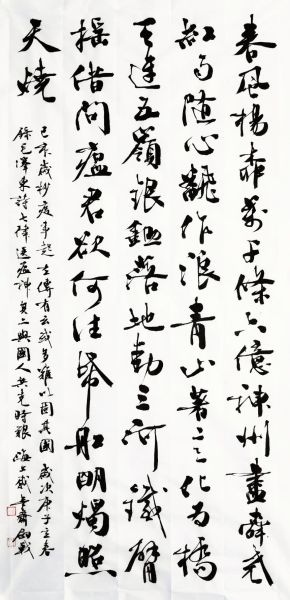 春風楊柳萬千條六億神州盡舜堯
紅雨隨心翻作浪青山著意化为橋
天連五嶺銀鋤落地動三河鐵臂
搖借問瘟君欲何往帋船明燭照
天燒
己亥歲杪疫事起左傳有云或多難以固其國歲次庚子立春
錄毛澤東詩七律送瘟神其二與國人共克時艱海上